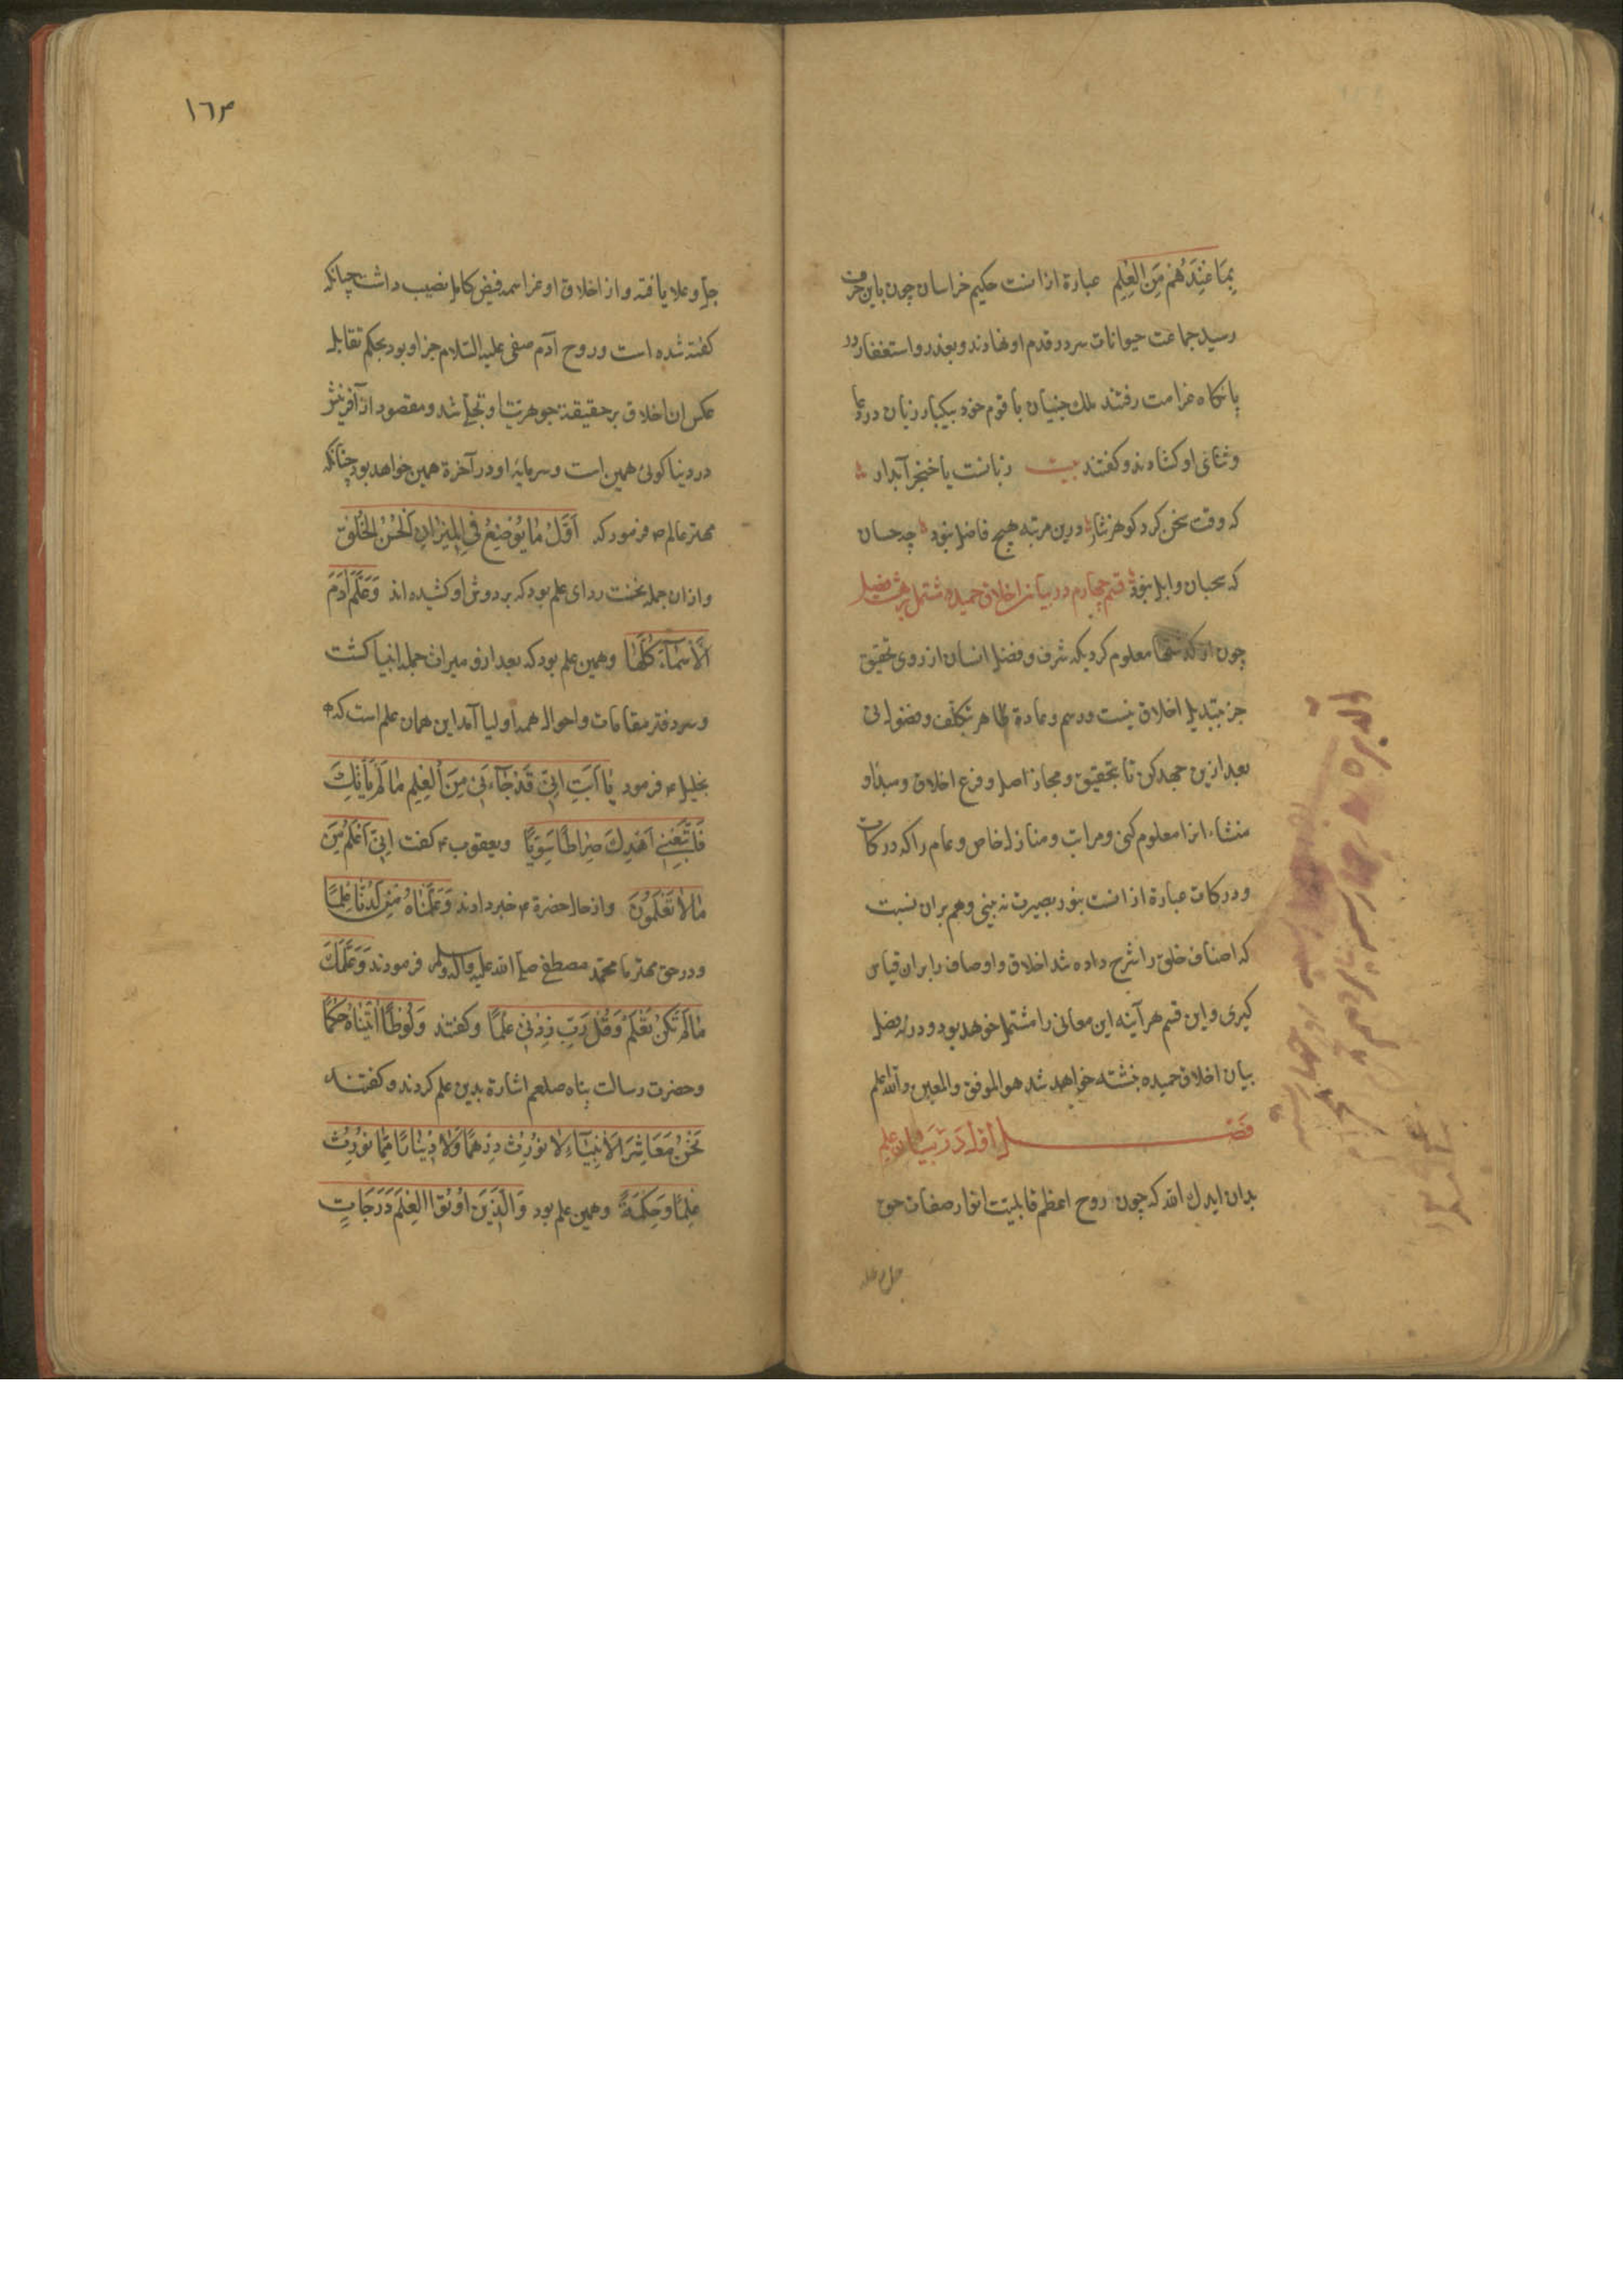 بِمَا عِنْدَهُمْ مِنَ الْعِلْمِ عبارة ازانست حکیم خراسان چون باین حرف
رسید جماعت حیوانات سر در قدم او نهادند و بعذر و استغفار در
پانکاه غرامت رفتند ملك جنیان با قوم خود بیکبار زبان در دعا
و ثنای او کشادند و کفتند بیت زبانست یا خنجر آبدار
که وقت سخن کرد کوهر نثار درین مرتبه هیچ فاضل نبود چه حسان
که سحبان وایل نبود قسم چهارم در بیان اخلاق حمیده مشتمل بر هشت فصل
چون از کذشتها معلوم کردیکه شرف و فضل انسان از روی تحقیق
جز بتبدیل اخلاق نیست و رسم و عادة ظاهر تکلف و فضولی
بعد ازین جهد کن تا بتحقیق و مجاز اصل و فرع اخلاق و مبداو
منشاء انرا معلوم کنی و مراتب و منازل خاص و عام را که درکات
و درکات عبارة از انست بنور بصیرت نه بینی و هم بران نسبت
که اصناف خلق را شرح داده شد اخلاق و اوصاف را بران قیاس
کیری و این قسم هر آینه این معانی را مشتمل خوهد بود و در فصل
بیان اخلاق حمیده نبشته خواهد شد هو الموفق والمعین والله اعلم
فصل اول در بیان علم
بدان ایدك الله که چون روح اعظم قابلیت انوار صفات حق
جل و علا
١٦٣
جل و علا یافته و از اخلاق او عز اسمه فیض کامل نصیب داشت چنانکه
کفته شده است و روح آدم صفی علیه السلام جز او بود بحکم تقابل
عکس ان اخلاق بر حقیقة جوهر متجلی شد و مقصود از آفرینش
در دنیا کوئی همین است و سرمایه او در آخرة همین خواهد بود چنانکه
مهتر عالم ص فرمود که اَوَّلُ مَا یُوْضَعُ فِی الْمِیْزَانِ الْحُسْنُ الْخُلْقِ
و ازان جمله نخست ردای علم بود که بر دوش او کشیده اند وَعَلَّمَ اٰدَمَ
الْاَسْمَآءَ کُلَّهَا و همین علم بود که بعد ازو میراث جمله انبیا کشت
و سر دفتر مقامات و احوال همه اولیا آمد این همان علم است که
بخلیل ع فرمود یَا اَبَتِ اِنِّی قَدْ جَآءَنِی مِنَ الْعِلْمِ مَا لَمْ یَأْتِكَ
فَاتَّبِعْنِی اَهْدِكَ صِرَاطًا سَوِیًّا و یعقوب ع کفت اِنِّی اَعْلَمُ مِنَ
مَا لَا تَعْلَمُوْنَ و از حال حضرة ع خبر دادند وَعَلَّمْنَاهُ مِنْ لَدُنَّا عِلْمًا
و در حق مهتر ما محمد مصطفی صلی الله علیه و آله و سلم فرمودند وَعَلَّمَكَ
مَا لَمْ تَکُنْ تَعْلَمُ وَقُلْ رَبِّ زِدْنِی عِلْمًا و کفتند وَلُوْطًا اٰتَیْنَاهُ حُکْمًا
و حضرت رسالت پناه صلعم اشارة بدین علم کردند و کفتند
نَحْنُ مَعَاشِرَ الْاَنْبِیَآءِ لَا نُوْرِثُ دِرْهَمًا وَلَا دِیْنَارًا مِمَّا نُوْرِثُ
عِلْمًا وَحِکْمَةً و همین علم بود وَالَّذِیْنَ اُوْتُوا الْعِلْمَ دَرَجَاتٍ